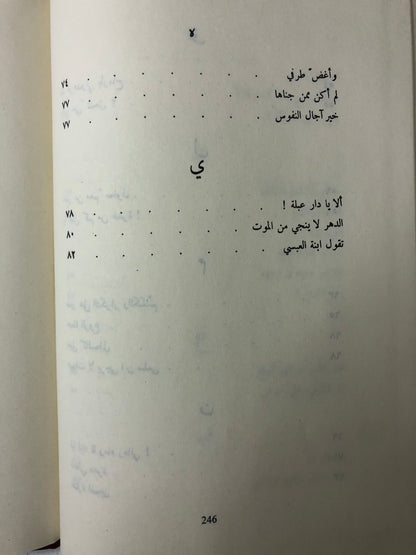 لا
وأغضّ طرفي . . . . . . . ٧٤
لم أكن ممن جناها . . . . . . . ٧٧
خير آجال النفوس . . . . . . . ٧٧
ي
ألا يا دار عبلة ! . . . . . . . ٧٨
الدهر لا ينجي من الموت . . . . . . . ٨٠
تقول ابنة العبسي . . . . . . . ٨٢
246